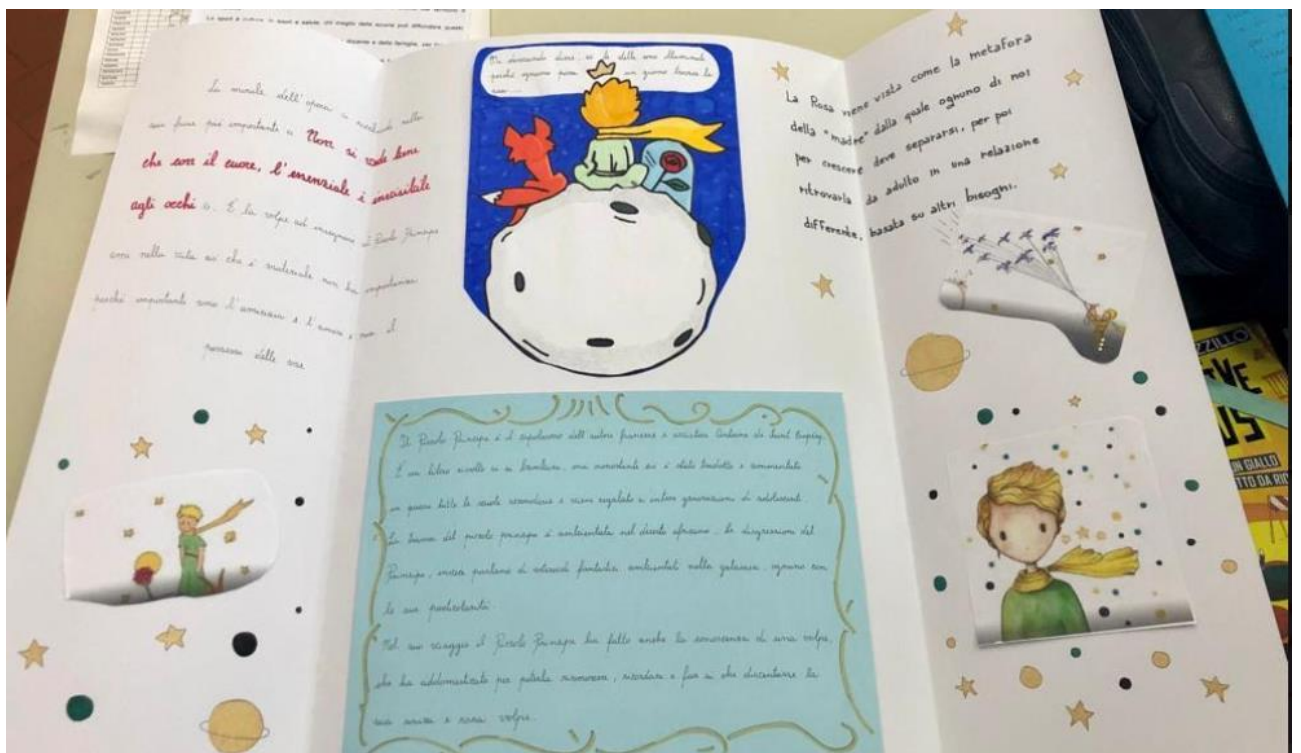 Lo sport è cultura, lo sport è salute, chi meglio della scuola può diffondere questi
docente e della famiglia, per
La morale dell'opera è racchiusa nella
sua frase più importante « Non si vede bene
che con il cuore, l'essenziale è invisibile
agli occhi ». È la volpe ad insegnare al Piccolo Principe
come nella vita ciò che è materiale non ha importanza
perché importante sono l'amicizia e l'amore e non il
possesso delle cose
Mi domando disse, se le stelle sono illuminate
perché ognuno possa un giorno trovare la
sua
La Rosa viene vista come la metafora
della "madre" dalla quale ognuno di noi
per crescere deve separarsi, per poi
ritrovarla da adulto in una relazione
differente, basata su altri bisogni.
Il Piccolo Principe è il capolavoro dell'autore francese e aviatore Antoine de Saint Exupéry.
È un libro rivolto ai bambini, ma nonostante ciò è stato tradotto e commentato
in quasi tutte le scuole secondarie e viene regalato a intere generazioni di adolescenti
La trama del piccolo principe è ambientata nel deserto africano, le digressioni del
Principe, invece parlano di asteroidi fantastici ambientati nella galassia, ognuno con
le sue particolarità
Nel suo viaggio il Piccolo Principe ha fatto anche la conoscenza di una volpe,
che ha addomesticato per poterla riconoscere, ricordare e far sì che diventasse la
sua unica e rara volpe.
ZZILLO
UN GIALLO
TTO DA RIC